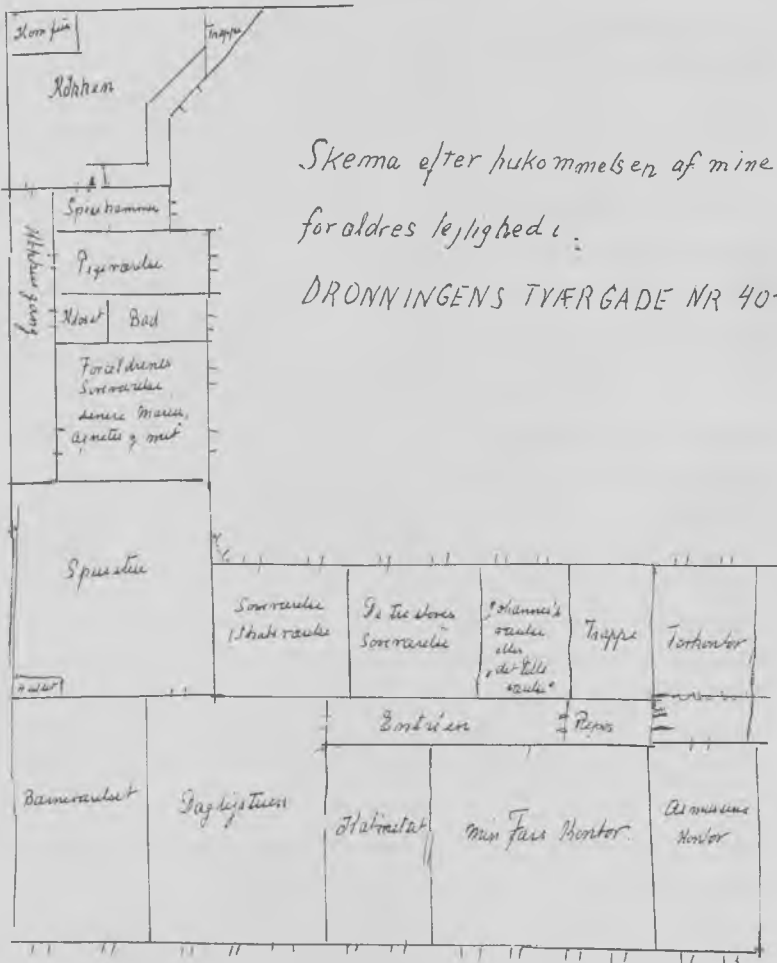 Komfur
Trappe
Køkken
Skema efter hukommelsen af mine
forældres lejlighed i:
DRONNINGENS TVÆRGADE NR 40
Spisekammer
Pigeværelse
Kloset
Bad
Køkkengang
Forældrenes
Soveværelse
senere Maries,
Agnetes og mit
Spisestue
Soveværelse
De tre stores
Soveværelse
"Johannes's
værelse
eller
"det lille
værelse"
Trappe
Forkontor
Entréen
Repos
Barneværelset
Dagligstuen
Kabinettet
min Fars Kontor
Asmussens
Kontor